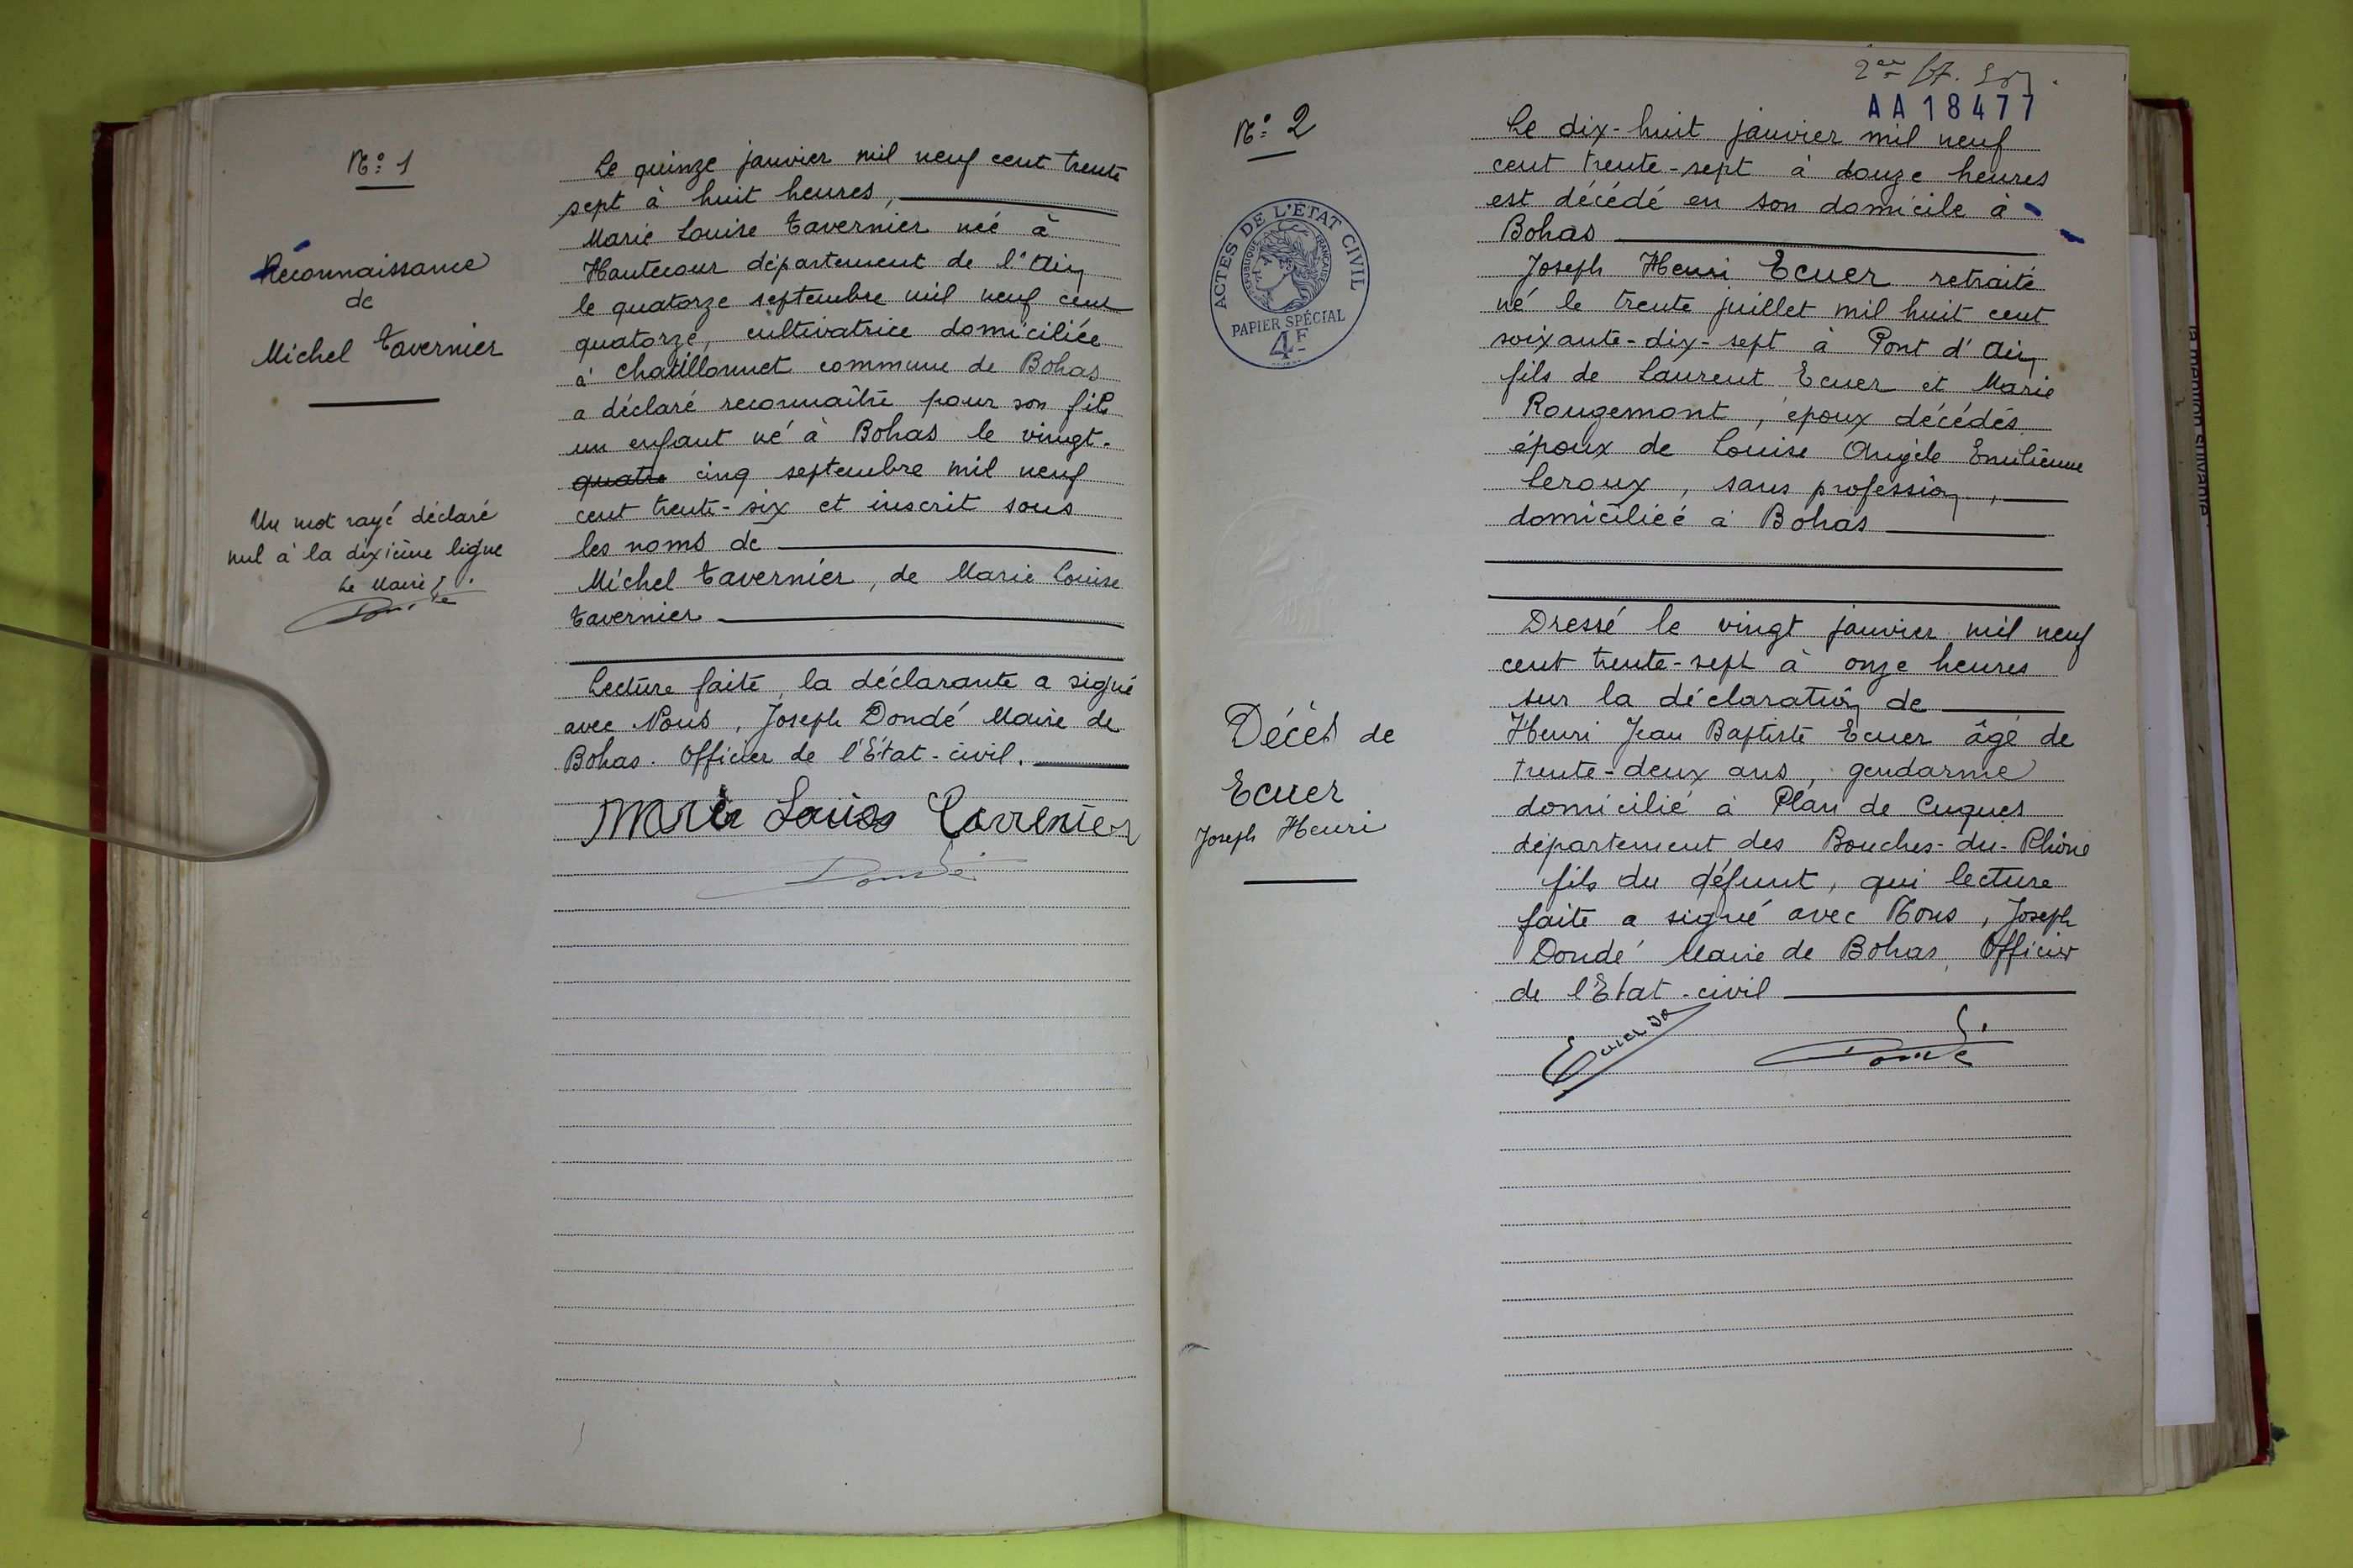 N° 1
Réconnaissance
de
Michel Tavernier
Un mot rayé déclaré
nul à la dixième ligne
Le Maire
Dondé
Le quinze janvier mil neuf cent trente
sept à huit heures,
Marie Louise Tavernier née à
Hautecour département de l'Ain
le quatorze septembre mil neuf cent
quatorze, cultivatrice domiciliée
à Chatillonnet commune de Bohas
a déclaré reconnaître pour son fils
un enfant né à Bohas le vingt-
quatre cinq septembre mil neuf
cent trente-six et inscrit sous
les noms de
Michel Tavernier, de Marie Louise
Tavernier
Lecture faite, la déclarante a signé
avec Nous, Joseph Dondé Maire de
Bohas. Officier de l'Etat-civil.
Marie Louise Tavernier
Dondé
AA18477
N° 2
ACTES DE L'ÉTAT CIVIL
RÉPUBLIQUE FRANÇAISE
PAPIER SPÉCIAL
4F
Décès de
Ecuer
Joseph Henri
Le dix-huit janvier mil neuf
cent trente-sept à douze heures
est décédé en son domicile à
Bohas
Joseph Henri Ecuer retraité
né le trente juillet mil huit cent
soixante-dix-sept à Pont d'Ain
fils de Laurent Ecuer et Marie
Rougemont, époux décédés
époux de Louise Angèle Emilienne
Leroux, sans profession,
domiciliée à Bohas
Dressé le vingt janvier mil neuf
cent trente-sept à onze heures
sur la déclaration de
Henri Jean Baptiste Ecuer âgé de
trente-deux ans, gendarme
domicilié à Plan de Cuques
département des Bouches-du-Rhône
fils du défunt, qui lecture
faite a signé avec Nous, Joseph
Dondé Maire de Bohas, Officier
de l'Etat-civil
Ecuer
Dondé